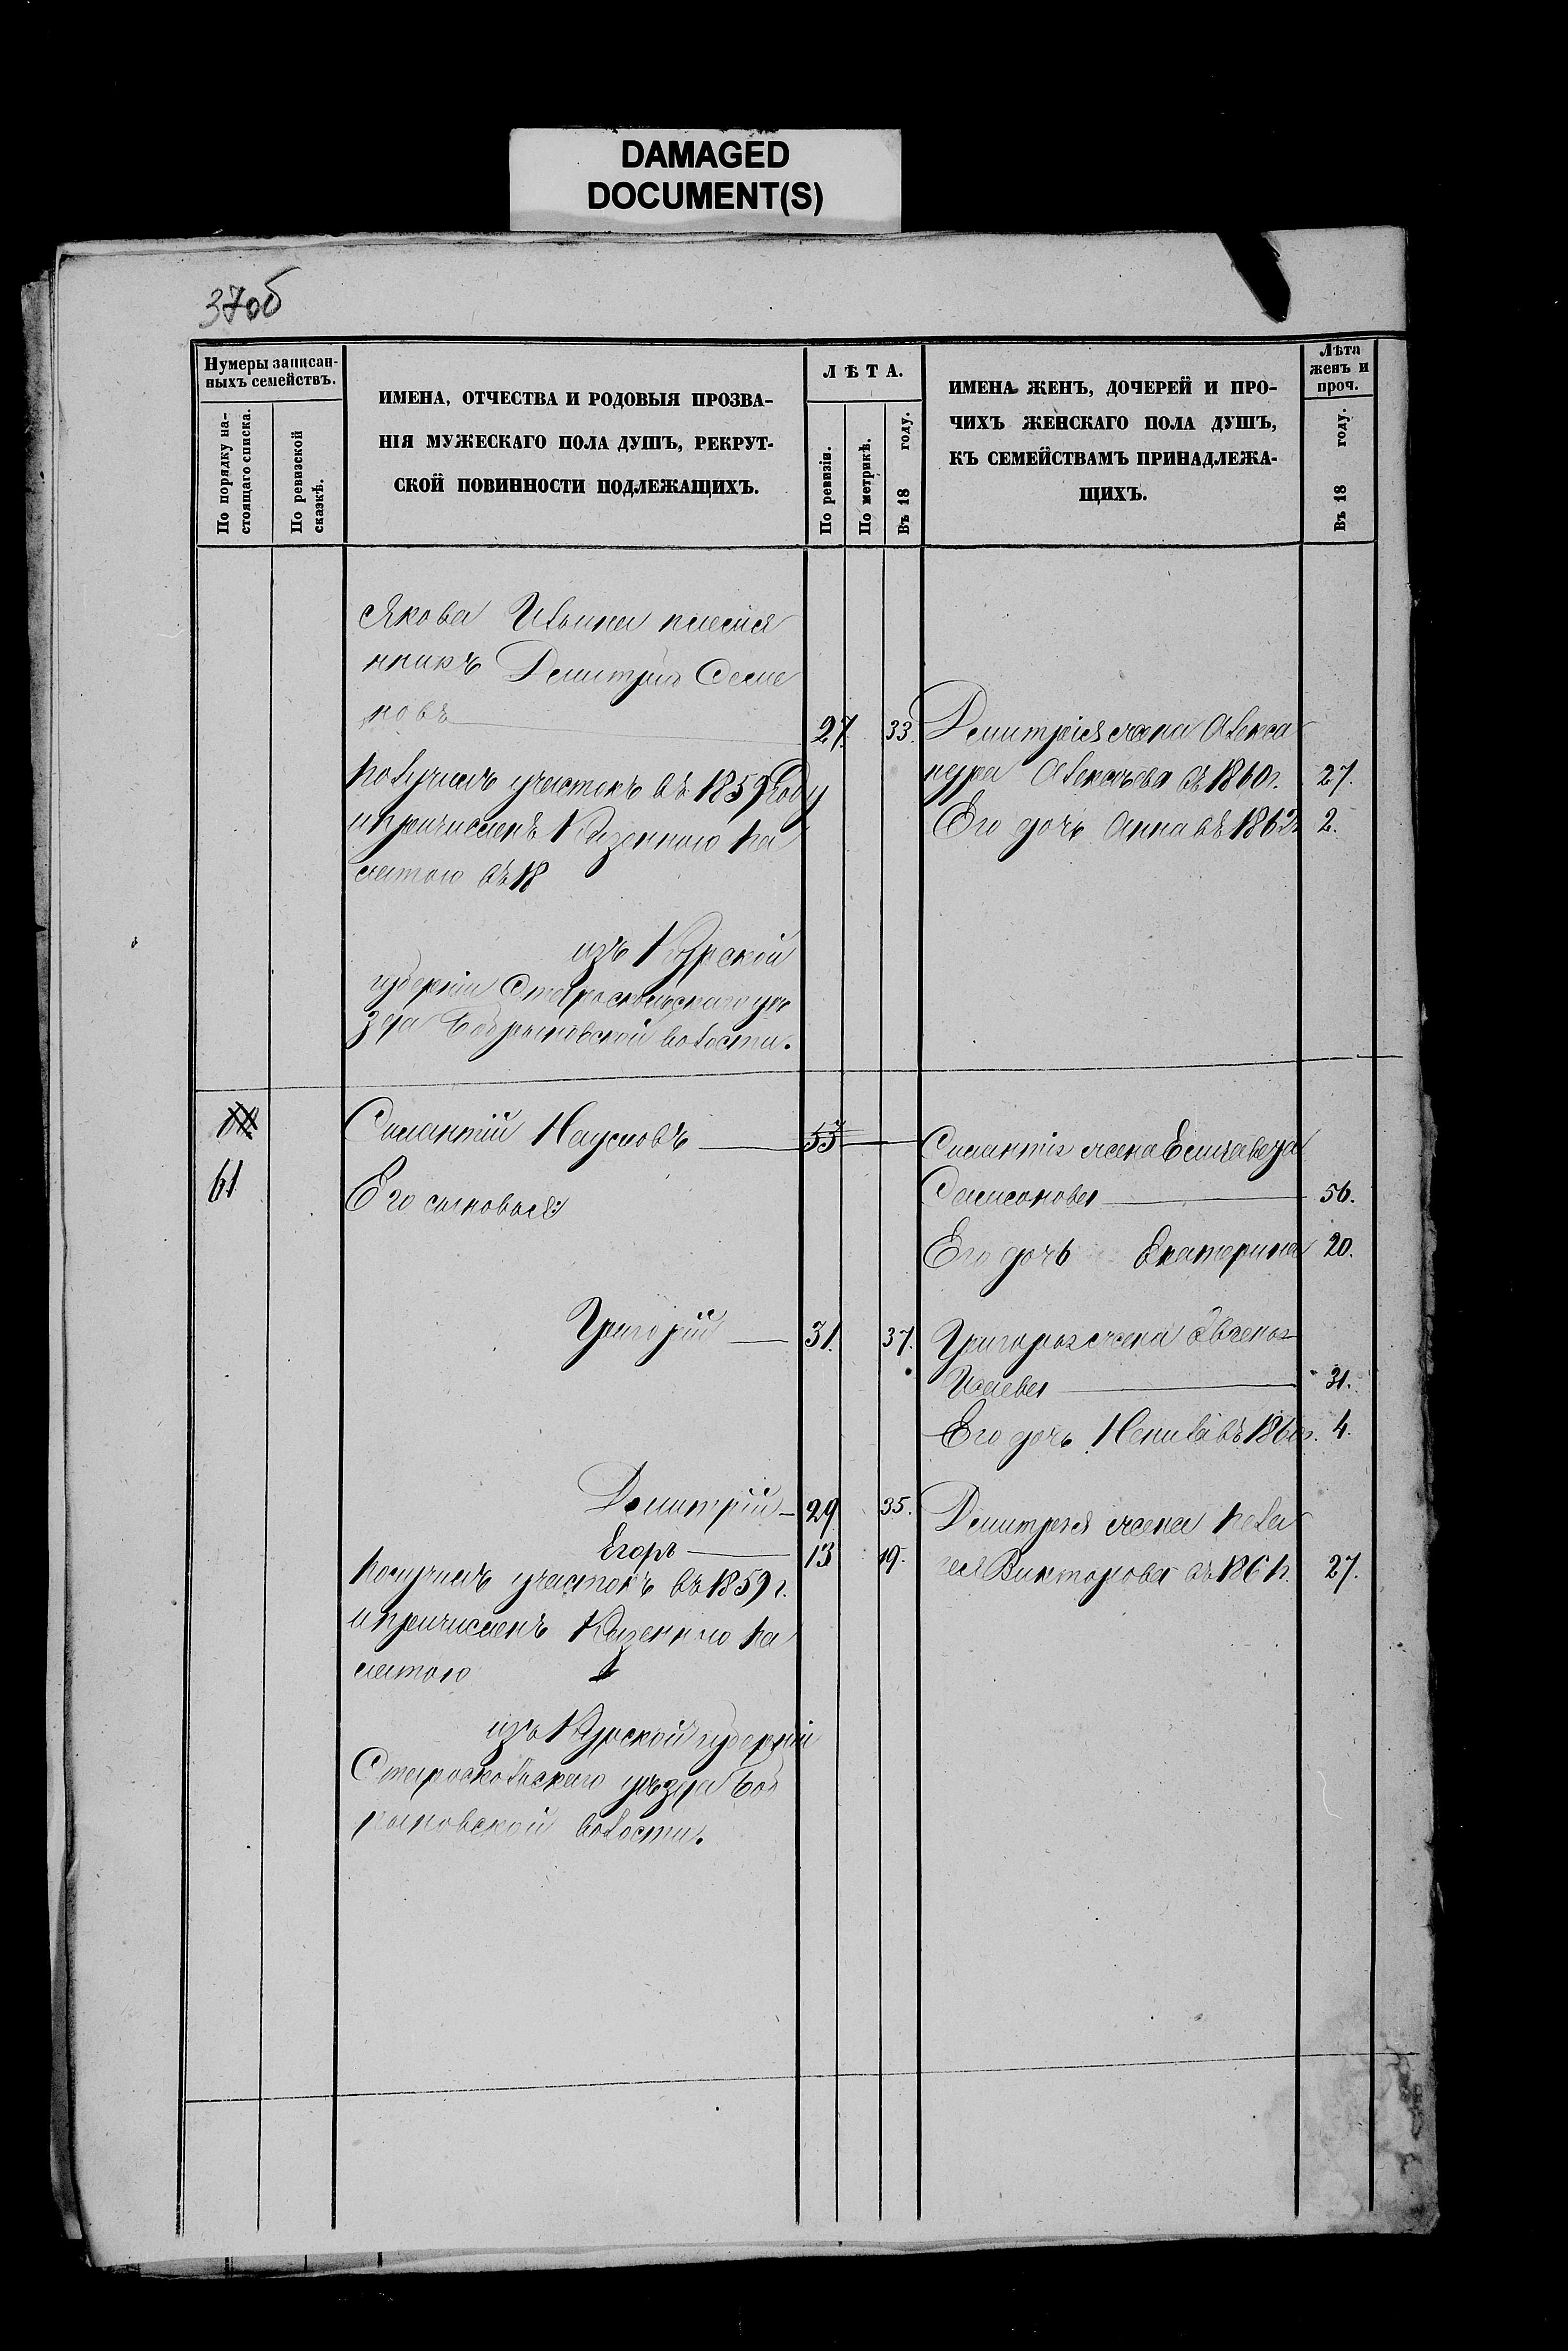 DAMAGED
DOCUMENT(S)
37об
Нумеры записан-
ныхъ семействъ.
По порядку на-
стоящаго списка.
По ревизской
сказкѣ.
ИМЕНА, ОТЧЕСТВА И РОДОВЫЯ ПРОЗВА-
НІЯ МУЖЕСКАГО ПОЛА ДУШЪ, РЕКРУТ-
СКОЙ ПОВИННОСТИ ПОДЛЕЖАЩИХЪ.
ЛѢТА.
По ревизіи.
По метрикѣ.
Въ 18 году.
ИМЕНА ЖЕНЪ, ДОЧЕРЕЙ И ПРО-
ЧИХЪ ЖЕНСКАГО ПОЛА ДУШЪ,
КЪ СЕМЕЙСТВАМЪ ПРИНАДЛЕЖА-
ЩИХЪ.
Лѣта
женъ и
проч.
Въ 18 году.
Якова Ильина племя
нникъ Дмитрій Семе
новъ 27. 33.
Дмитрія жена Алекса
ндра Алексѣева въ 1860 г. 27.
Его дочь Анна въ 1862 г. 2.
Получилъ участокъ въ 1859 Году
и причисленъ Казенною Па
латою въ 18
изъ Курской
губерніи Старооскольскаго уѣ
зда Бобрыновской волости.
61
Силантій Наумовъ 53
Силантія жена Елизавета
Самсонова 56.
Его сыновья:
Его дочь Екатерина 20.
Григорій 31. 37.
Григорья жена
31.
Его дочь въ 1860 г. 4.
Дмитрій 29 35.
Дмитрія жена Пела
гея Викторова въ 1861 г. 27.
Егоръ 13 19.
Получилъ участокъ въ 1859 г.
и причисленъ Казенною Па
латою
изъ Курской губерніи
Старооскольскаго уѣзда Боб
рыновской волости.